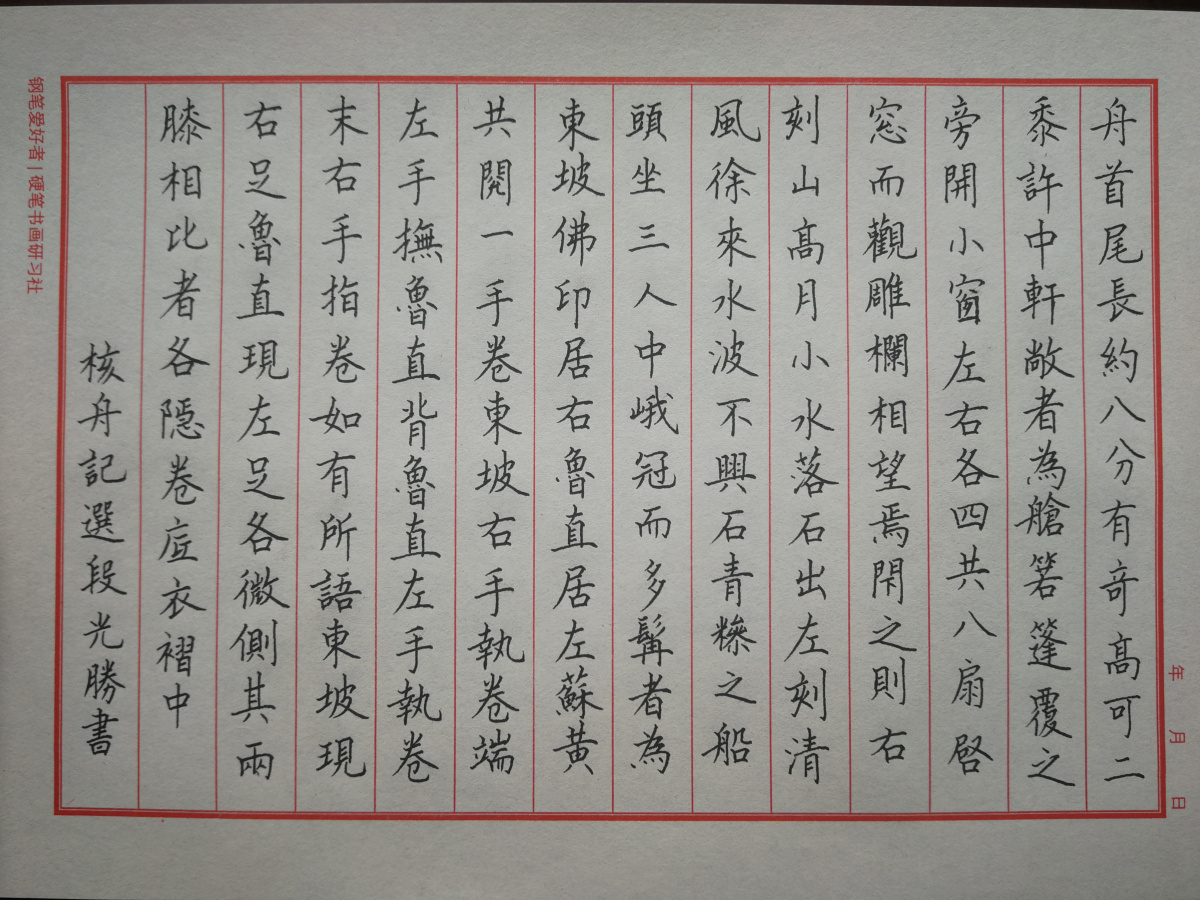 舟首尾長約八分有奇高可二
黍許中軒敞者為艙箬篷覆之
旁開小窗左右各四共八扇啓
窓而觀雕欄相望焉閇之則右
刻山高月小水落石出左刻清
風徐來水波不興石青糝之船
頭坐三人中峨冠而多髯者為
東坡佛印居右魯直居左蘇黃
共閱一手卷東坡右手執卷端
左手撫魯直背魯直左手執卷
末右手指卷如有所語東坡現
右足魯直現左足各微側其兩
膝相比者各隱卷底衣褶中
核舟記選段光勝書
钢笔爱好者|硬笔书画研习社
年 月 日